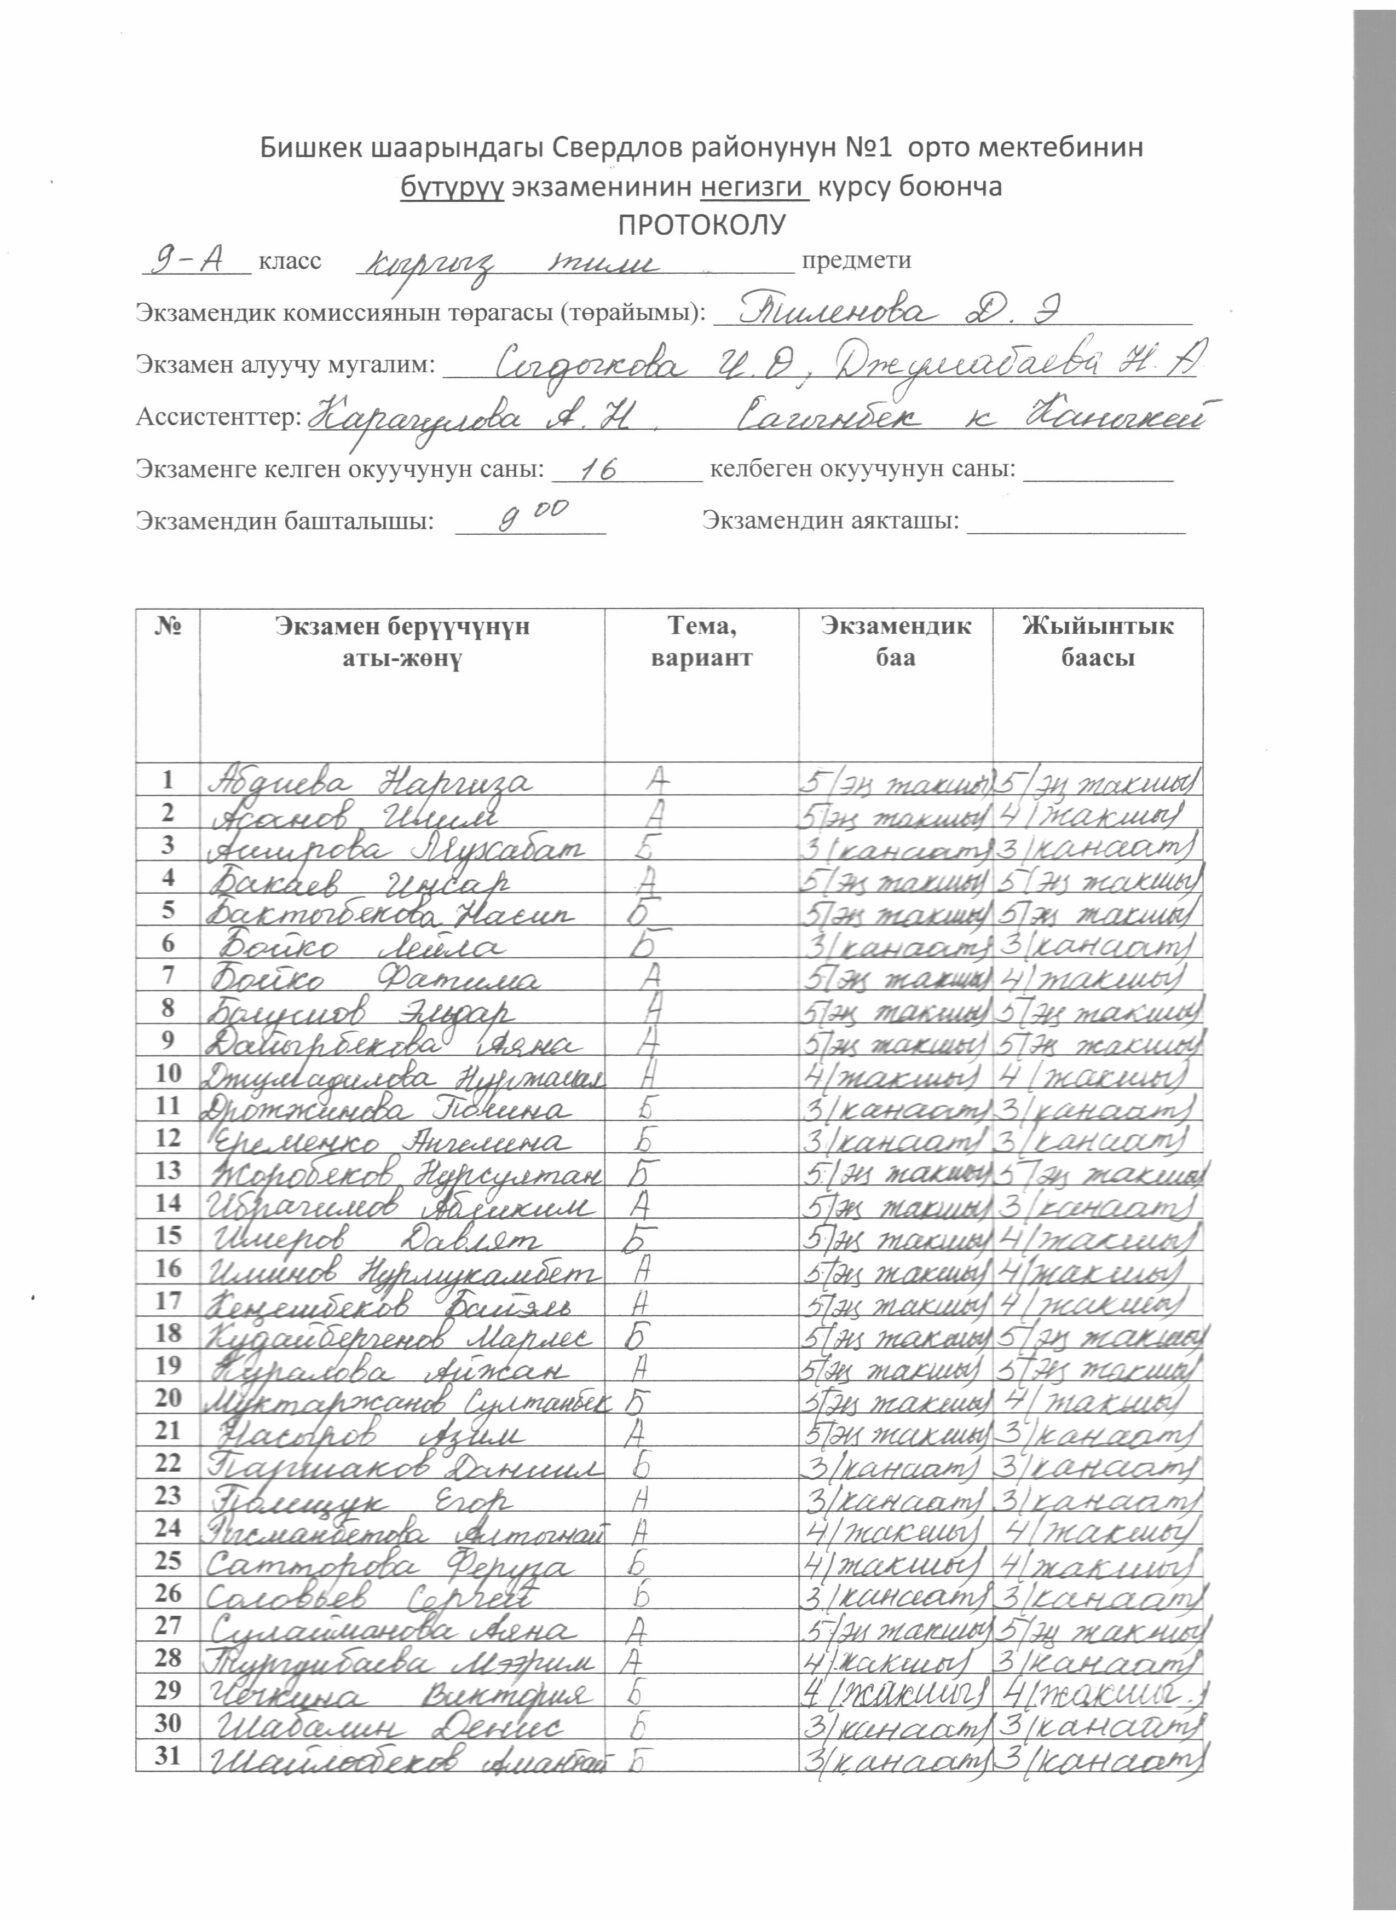 Бишкек шаарындагы Свердлов районунун №1 орто мектебинин
бүтүрүү экзаменинин негизги курсу боюнча
ПРОТОКОЛУ
9-А класс кыргыз тили предмети
Экзамендик комиссиянын төрагасы (төрайымы): Тиленова Д. Э
Экзамен алуучу мугалим: Сыдыкова И.О, Джумабаева Н. А
Ассистенттер: Карагулова А. Н. Сагынбек к Каныкей
Экзаменге келген окуучунун саны: 16 келбеген окуучунун саны:
Экзамендин башталышы: 9 00 Экзамендин аякташы:
№ Экзамен берүүчүнүн аты-жөнү Тема, вариант Экзамендик баа Жыйынтык баасы
1 Абдиева Наргиза А 5/эң жакшы/ 5/эң жакшы/
2 Асанов Илим А 5/эң жакшы/ 4/жакшы/
3 Аширова Мухабат Б 3/канаат/ 3/канаат/
4 Бакаев Инсар А 5/эң жакшы/ 5/эң жакшы/
5 Бактыбекова Насип Б 5/эң жакшы/ 5/эң жакшы/
6 Бойко Лейла Б 3/канаат/ 3/канаат/
7 Бойко Фатима А 5/эң жакшы/ 4/жакшы/
8 Болушов Эльдар А 5/эң жакшы/ 5/эң жакшы/
9 Дайырбекова Аяна А 5/эң жакшы/ 5/эң жакшы/
10 Джумадилова А 4/жакшы/ 4/жакшы/
11 Дрожжинова Полина Б 3/канаат/ 3/канаат/
12 Еременко Ангелина Б 3/канаат/ 3/канаат/
13 Жоробеков Нурсултан Б 5/эң жакшы/ 5/эң жакшы/
14 Ибрагимов Абдихим А 5/эң жакшы/ 3/канаат/
15 Имеров Давлят Б 5/эң жакшы/ 4/жакшы/
16 Иминов Нурмухамбет А 5/эң жакшы/ 4/жакшы/
17 Кеңешбеков Байэль А 5/эң жакшы/ 4/жакшы/
18 Кудайбергенов Марлес Б 5/эң жакшы/ 5/эң жакшы/
19 Куралова Айжан А 5/эң жакшы/ 5/эң жакшы/
20 Муктаржанов Султанбек Б 5/эң жакшы/ 4/жакшы/
21 Насыров Азим А 5/эң жакшы/ 3/канаат/
22 Паршаков Даниил Б 3/канаат/ 3/канаат/
23 Полищук Егор А 3/канаат/ 3/канаат/
24 Рысманбетова Алтынай А 4/жакшы/ 4/жакшы/
25 Сатторова Феруза Б 4/жакшы/ 4/жакшы/
26 Соловьев Сергей Б 3/канаат/ 3/канаат/
27 Сулайманова Аяна А 5/эң жакшы/ 5/эң жакшы/
28 Турдибаева Мээрим А 4/жакшы/ 3/канаат/
29 Чичкина Виктория Б 4/жакшы/ 4/жакшы/
30 Шабалин Денис Б 3/канаат/ 3/канаат/
31 Шайлообеков Амантай Б 3/канаат/ 3/канаат/